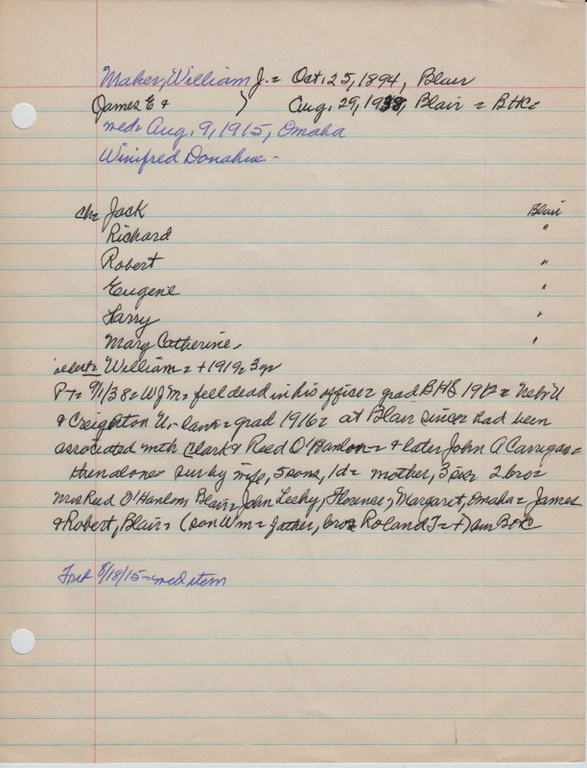 Maher, William J. = Oct. 25, 1894, Blair
(James E & ) Aug. 29, 1938, Blair = BHC=
med= Aug. 9, 1915, Omaha
Winifred Donahue -
Ch= Jack Blair
Richard "
Robert "
Eugene "
Larry "
Mary Catherine "
William = + 1919 = 3 yr
P-T= 9/1/38 = WJM = fell dead in his office = grad BHS 1912 = Nebr U
& Creighton U - law = grad 1916 = at Blair since = had been
associated with Clark & Reed O'Hanlon = & later John A Carrigan =
then alone = sur by wife, 5 sons, 1d = mother, 3 sis 2 bro =
Mrs Reed O'Hanlon, Blair = John Leehy, Florence; Margaret, Omaha = James
& Robert, Blair = (son Wm = father, bro = Roland J = +)
8/18/15 - med item